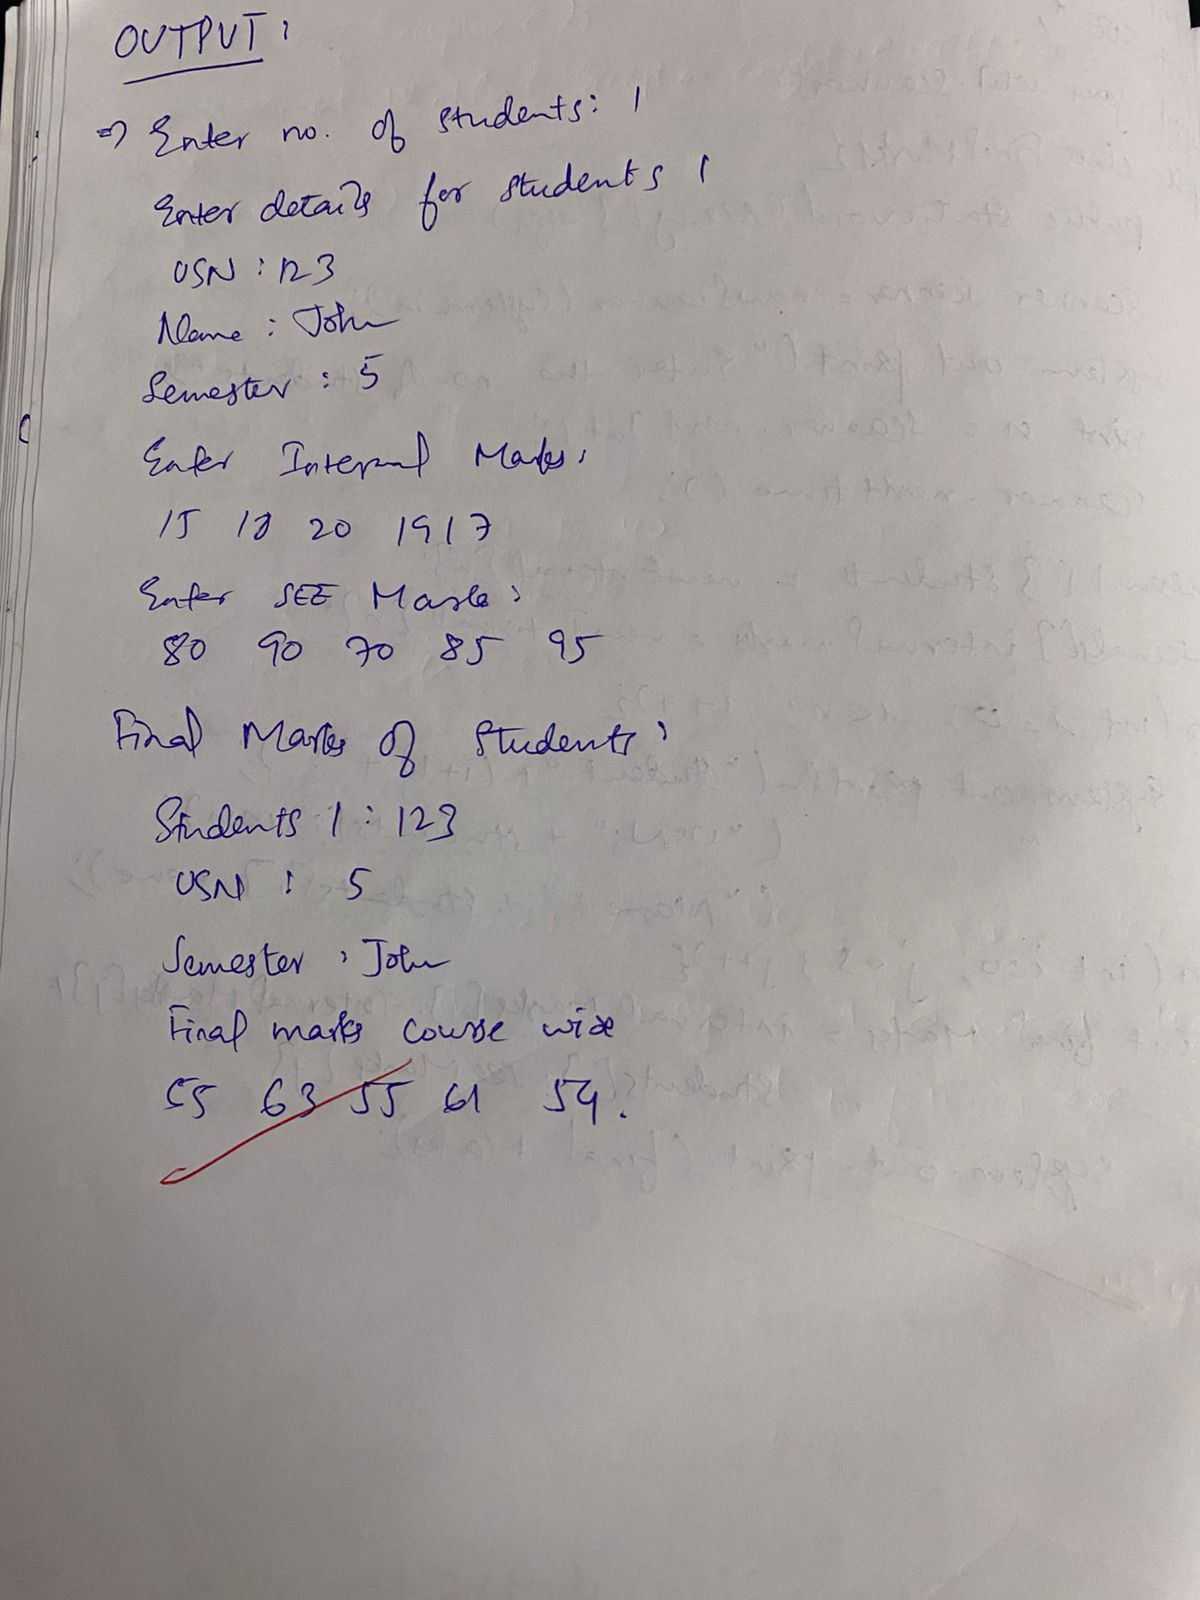 OUTPUT:
=> Enter no. of students: 1
Enter details for students 1
USN : 123
Name : John
Semester : 5
Enter Internal Marks:
15 18 20 19 17
Enter SEE Marks:
80 90 70 85 95
Final Marks of Students:
Students 1 : 123
USN : 5
Semester : John
Final marks course wise
55 63 55 61 54.